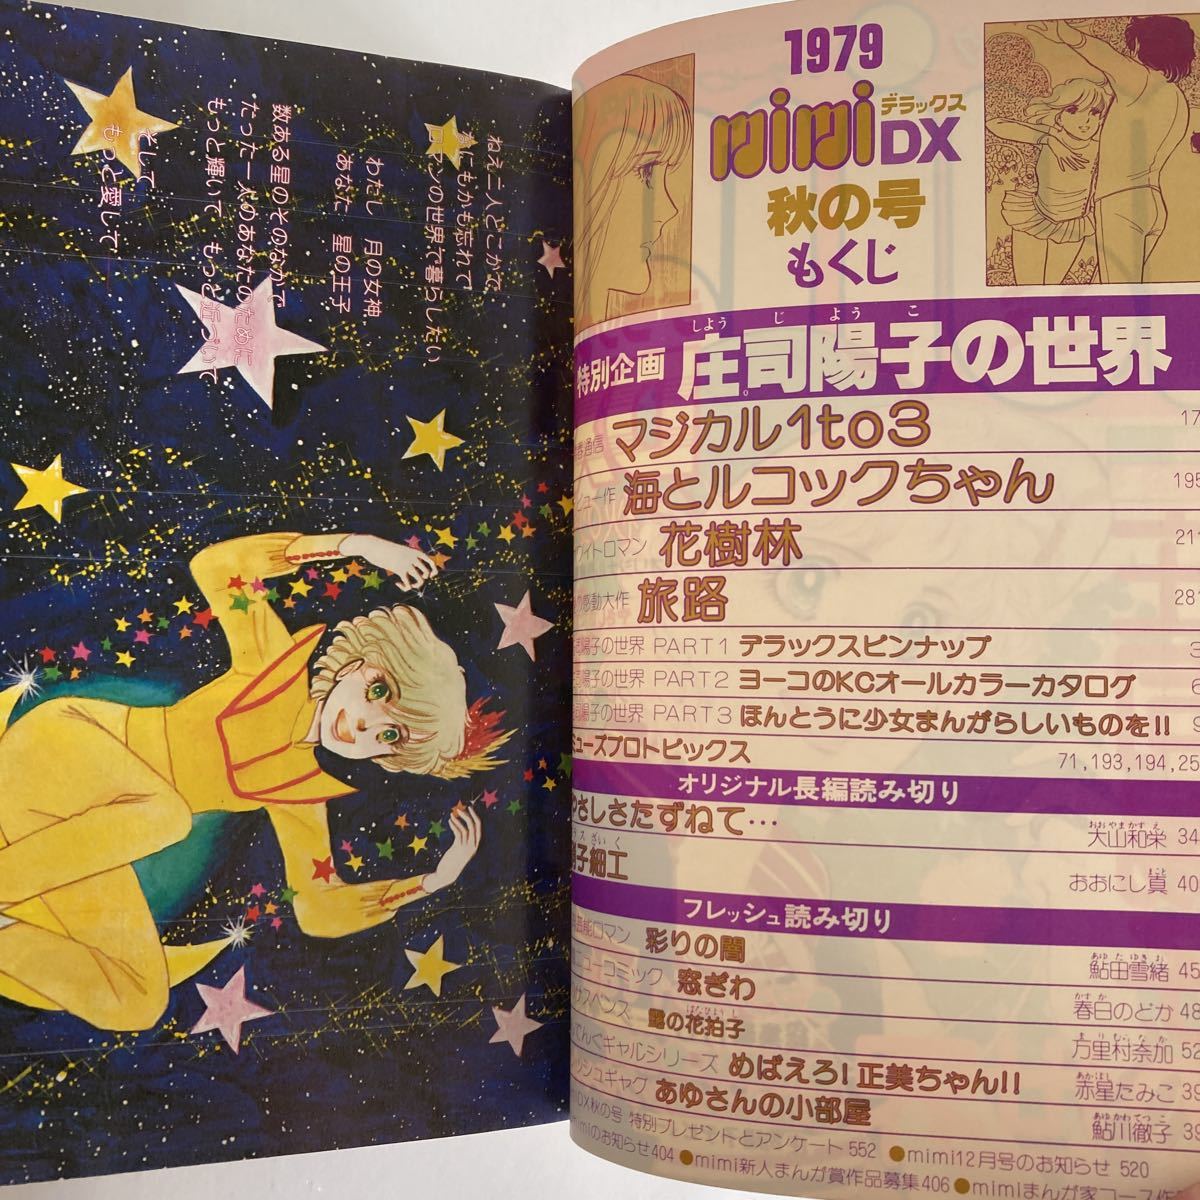 ねえ二人どこかで
なにもかも忘れて
ロマンの世界で暮らしたい
わたし 月の女神
あなた 星の王子
数ある星のそのなかで
たった一人のあなたのために
もっと輝いて もっと近づいて
そして
もっと愛して
1979
mimiデラックスDX
秋の号
もくじ
しようじようこ
特別企画 庄司陽子の世界
通信 マジカル1to3 17
ュー作 海とルコックちゃん 195
ワイトロマン 花樹林 211
感動大作 旅路 281
司陽子の世界 PART1 デラックスピンナップ 3
司陽子の世界 PART2 ヨーコのKCオールカラーカタログ 6
司陽子の世界 PART3 ほんとうに少女まんがらしいものを!! 9
ニューズプロトピックス 71,193,194,25
オリジナル長編読み切り
やさしさたずねて… 大山和栄 34
おおやまかずえ
子細工 おおにし真 40
フレッシュ読み切り
芸能ロマン 彩りの闇 鮎田雪緒 45
あゆたゆきお
ニューコミック 窓ぎわ 春日のどか 48
かすか
サスペンス 露の花拍子 万里村奈加 52
てんぐギャルシリーズ めばえろ!正美ちゃん!! 赤星たみこ 35
あかぼし
ッシュギャグ あゆさんの小部屋 鮎川徹子 39
あゆかわてつこ
DX秋の号 特別プレゼントとアンケート 552 ●mimi12月号のお知らせ 520
mimiのお知らせ404 ●mimi新人まんが賞作品募集406 ●mimiまんが家コース作